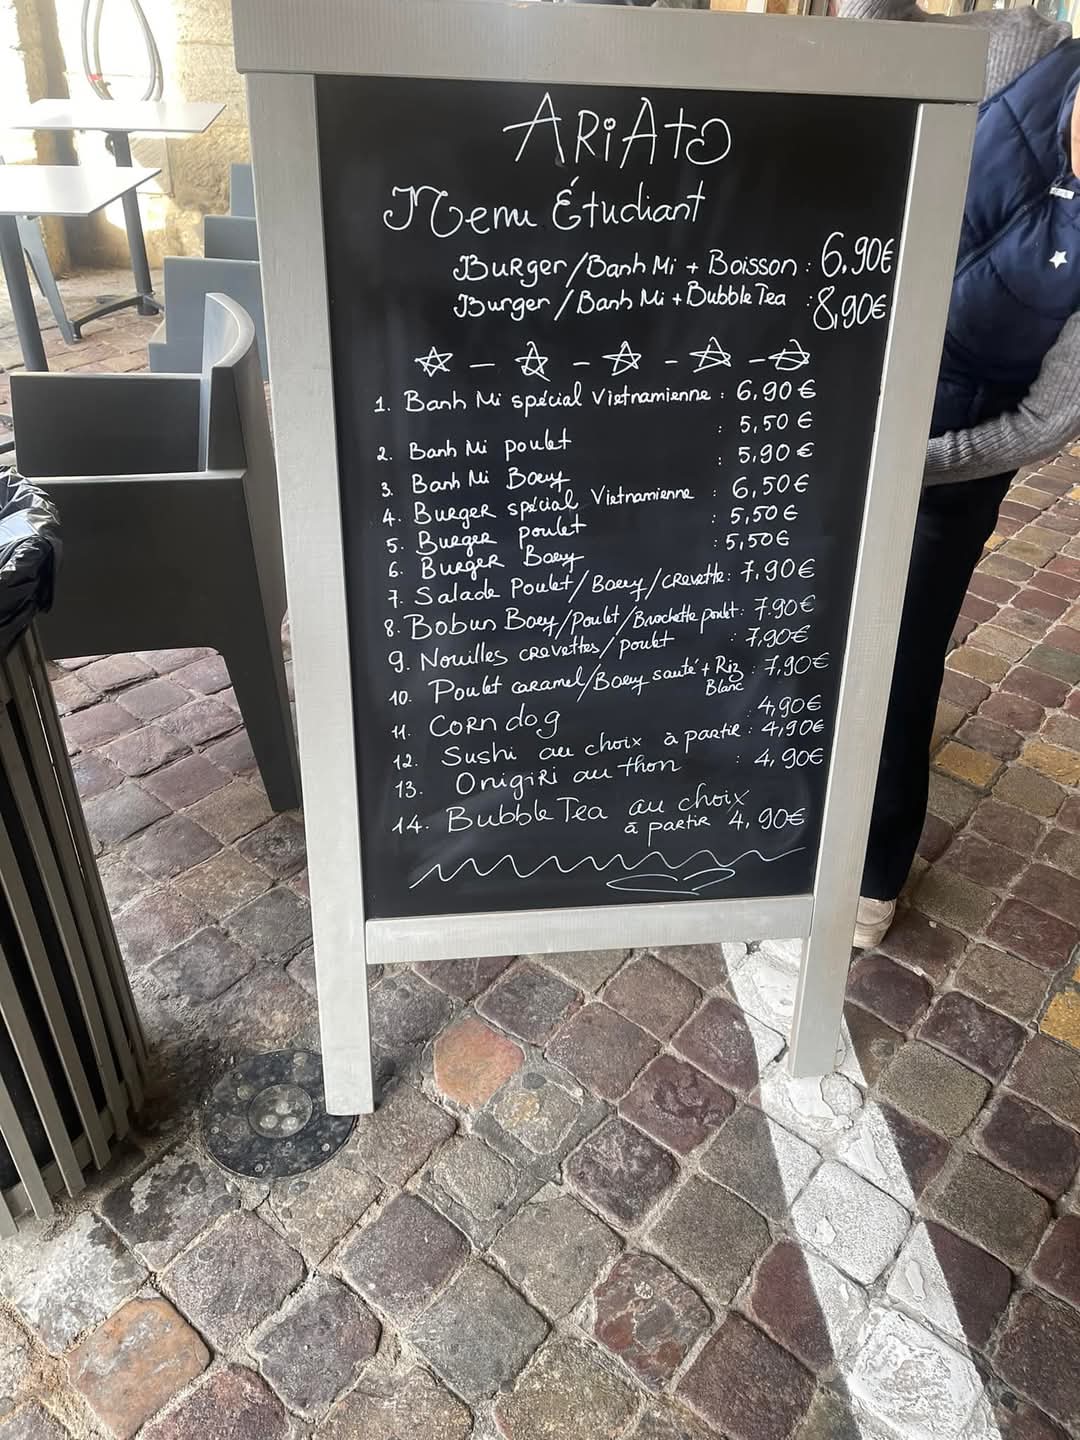 ARiAtO
Menu Étudiant
Burger/Banh Mi + Boisson : 6.90€
Burger/Banh Mi + Bubble Tea : 8,90€
1. Banh Mi spécial Vietnamienne : 6,90€
2. Banh Mi poulet : 5,50€
3. Banh Mi Boeuf : 5,90€
4. Burger spécial Vietnamienne : 6,50€
5. Burger poulet : 5,50€
6. Burger Boeuf : 5,50€
7. Salade Poulet/Boeuf/crevette : 7,90€
8. Bobun Boeuf/Poulet/Brochette poulet : 7.90€
9. Nouilles crevettes/poulet : 7,90€
10. Poulet caramel/Boeuf sauté + Riz : 7,90€
Blanc
11. Corn dog : 4,90€
12. Sushi au choix à partir : 4,90€
13. Onigiri au thon : 4,90€
14. Bubble Tea au choix
à partir 4,90€